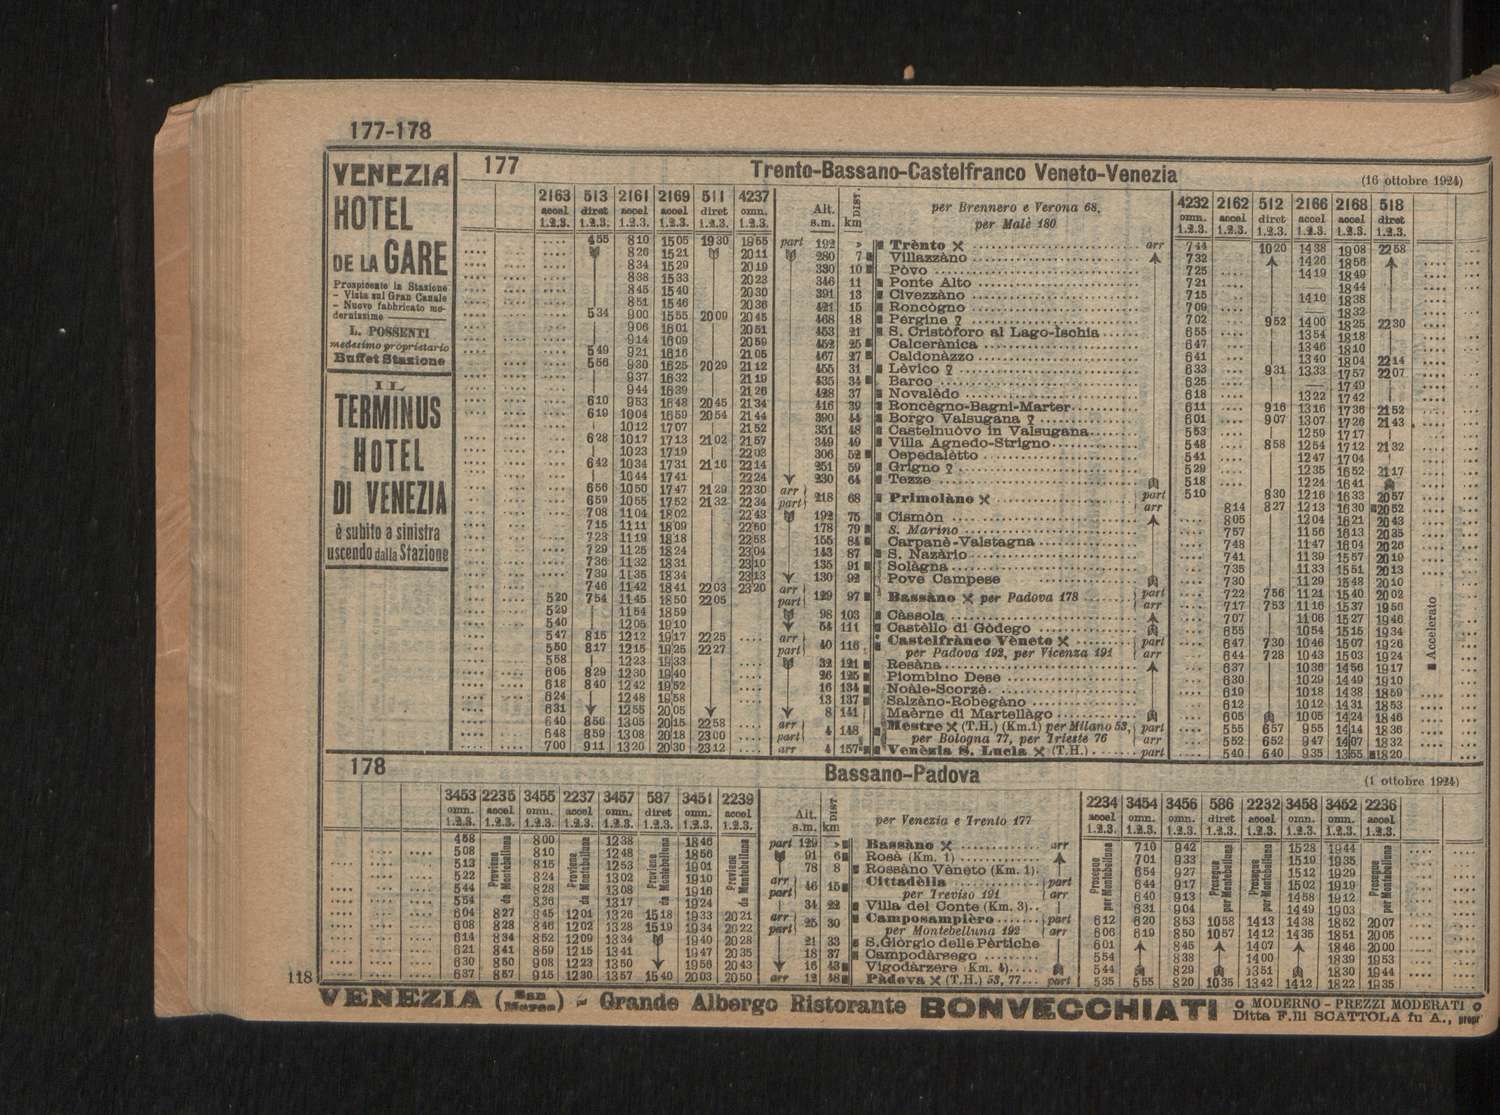 177-178
VENEZIA
HOTEL
DE LA GARE
Prospicente la Stazione
- Vista sul Gran Canale
- Nuovo fabbricato mo-
dernissimo
L. POSSENTI
medesimo proprietario
Buffet Stazione
IL
TERMINUS
HOTEL
DI VENEZIA
è subito a sinistra
uscendo dalla Stazione
177 Trento-Bassano-Castelfranco Veneto-Venezia (16 ottobre 1924)
2163 513 2161 2169 511 4237 Alt. DIST. per Brennero e Verona 68, 4232 2162 512 2166 2168 518
accel diret accel accel diret omn. s.m. km per Malè 180 omn. accel diret accel accel diret
1.2.3. 1.2.3. 1.2.3. 1.2.3. 1.2.3. 1.2.3. 1.2.3. 1.2.3. 1.2.3. 1.2.3. 1.2.3. 1.2.3.
4 55 8 10 15 05 19 30 19 55 part 192 » Trènto arr 7 44 10 20 14 38 19 08 22 58
8 26 15 21 20 11 280 7 Villazzàno 7 32 14 26 18 56
8 34 15 29 20 19 330 10 Pòvo 7 25 14 19 18 49
8 38 15 33 20 23 346 11 Ponte Alto 7 21 — 18 44
8 45 15 40 20 30 391 13 Civezzàno 7 15 14 10 18 38
8 51 15 46 20 36 421 15 Roncògno 7 09 — 18 32
5 34 9 00 15 55 20 09 20 45 468 18 Pérgine 7 02 9 52 14 00 18 25 22 30
9 06 16 01 20 51 453 21 S. Cristòforo al Lago-Ischia 6 55 13 54 18 18
9 14 16 09 20 59 452 25 Calcerànica 6 47 13 46 18 10
5 49 9 21 16 16 21 05 467 27 Caldonàzzo 6 41 13 40 18 04 22 14
5 56 9 30 16 25 20 29 21 12 455 31 Lèvico 6 33 9 31 13 33 17 57 22 07
9 37 16 32 21 19 435 34 Barco 6 25 — 17 49
9 44 16 39 21 26 428 37 Novalèdo 6 18 13 22 17 42
6 10 9 53 16 48 20 45 21 34 416 39 Roncègno-Bagni-Marter 6 11 9 16 13 16 17 36 21 52
6 19 10 04 16 59 20 54 21 44 390 44 Borgo Valsugana 6 01 9 07 13 07 17 26 21 43
10 12 17 07 21 52 351 48 Castelnuòvo in Valsugana 5 53 12 59 17 17
6 28 10 17 17 13 21 02 21 57 349 49 Villa Agnedo-Strigno 5 48 8 58 12 54 17 12 21 32
10 23 17 19 22 03 306 52 Ospedalètto 5 41 12 47 17 04
6 42 10 34 17 31 21 16 22 14 251 59 Grigno 5 29 12 35 16 52 21 17
10 44 17 41 22 24 230 64 Tezze 5 18 12 24 16 41
6 56 10 50 17 47 21 29 22 30 arr 218 68 Primolàno part 5 10 8 30 12 16 16 33 20 57
6 59 10 55 17 52 21 32 22 34 part arr 8 14 8 27 12 13 16 30 20 52
7 08 11 04 18 02 22 43 192 75 Cismòn 8 05 12 04 16 21 20 43
7 15 11 11 18 09 22 50 178 79 S. Marino 7 57 11 56 16 13 20 35
7 23 11 19 18 18 22 58 155 84 Carpanè-Valstagna 7 48 11 47 16 04 20 26
7 29 11 25 18 24 23 04 143 87 S. Nazàrio 7 41 11 39 15 57 20 19
7 36 11 32 18 31 23 10 135 91 Solàgna 7 35 11 33 15 51 20 13
7 39 11 35 18 34 23 13 130 92 Pove Campese 7 30 11 29 15 48 20 10
7 46 11 42 18 41 22 03 23 20 arr 129 97 Bassàno per Padova 178 part 7 22 7 56 11 21 15 40 20 02
5 20 7 54 11 45 18 50 22 05 part arr 7 17 7 53 11 16 15 37 19 56
5 29 11 54 18 59 98 103 Càssola 7 07 11 06 15 27 19 46
5 40 12 05 19 10 54 111 Castèllo di Gòdego 6 55 10 54 15 15 19 34
5 47 8 15 12 12 19 17 22 25 arr 40 116 Castelfrànco Vèneto part 6 47 7 30 10 46 15 07 19 26
5 50 8 17 12 15 19 25 22 27 part per Padova 192, per Vicenza 191 arr 6 44 7 28 10 43 15 03 19 24
5 58 12 23 19 33 32 121 Resàna 6 37 10 36 14 56 19 17
6 05 8 29 12 30 19 40 26 125 Piombino Dese 6 30 10 29 14 49 19 10
6 18 8 40 12 42 19 52 16 134 Noàle-Scorzè 6 19 10 18 14 38 18 59
6 24 12 48 19 58 13 137 Salzàno-Robegàno 6 12 10 12 14 31 18 53
6 31 12 55 20 05 8 141 Maèrne di Martellàgo 6 05 10 05 14 24 18 46
6 40 8 56 13 05 20 15 22 58 arr 4 148 Mestre (T.H.) (Km.1) per Milano 53, part 5 55 6 57 9 55 14 14 18 36
6 48 8 59 13 08 20 18 23 00 part per Bologna 77, per Trieste 76 arr 5 52 6 52 9 47 14 07 18 32
7 00 9 11 13 20 20 30 23 12 arr 4 157 Venèzia S. Lucia (T.H.) part 5 40 6 40 9 35 13 55 18 20
Accelerato
178 Bassano-Padova (1 ottobre 1924)
3453 2235 3455 2237 3457 587 3451 2239 Alt. DIST per Venezia e Trento 177 2234 3454 3456 586 2232 3458 3452 2236
omn. accel omn. accel omn. diret omn. accel s.m. km accel omn. omn. diret accel omn. omn. accel
1.2.3. 1.2.3. 1.2.3. 1.2.3. 1.2.3. 1.2.3. 1.2.3. 1.2.3. 1.2.3. 1.2.3. 1.2.3. 1.2.3. 1.2.3. 1.2.3. 1.2.3. 1.2.3.
Proviene da Montebelluna
Proviene da Montebelluna
Proviene da Montebelluna
Proviene da Montebelluna
Prosegue per Montebelluna
Prosegue per Montebelluna
Prosegue per Montebelluna
Prosegue per Montebelluna
4 58 8 00 12 38 18 46 part 129 » Bassàno arr 7 10 9 42 15 28 19 44
5 08 8 10 12 48 18 56 91 6 Rosà (Km. 1) 7 01 9 33 15 19 19 35
5 13 8 15 12 53 19 01 78 8 Rossàno Vèneto (Km. 1) 6 54 9 27 15 12 19 29
5 22 8 24 13 02 19 10 arr 46 15 Cittadèlla part 6 44 9 17 15 02 19 19
5 44 8 28 13 08 19 16 part per Treviso 191 arr 6 40 9 13 14 58 19 12
5 54 8 36 13 17 19 24 34 22 Villa del Conte (Km. 3) 6 31 9 04 14 49 19 03
6 04 8 27 8 45 12 01 13 26 15 18 19 33 20 21 arr 25 30 Camposampièro part 6 12 6 20 8 53 10 58 14 13 14 38 18 52 20 07
6 08 8 28 8 46 12 02 13 28 15 19 19 34 20 22 part per Montebelluna 192 arr 6 06 6 19 8 50 10 57 14 12 14 35 18 51 20 05
6 14 8 34 8 52 12 09 13 34 19 40 20 28 21 33 S.Giòrgio delle Pèrtiche 6 01 8 45 14 07 18 46 20 00
6 21 8 41 8 59 12 15 13 41 19 47 20 35 18 37 Campodàrsego 5 54 8 38 14 00 18 39 19 53
6 30 8 50 9 08 12 23 13 50 19 56 20 43 16 43 Vigodàrzere (Km. 4) 5 44 8 29 13 51 18 30 19 44
6 37 8 57 9 15 12 30 13 57 15 40 20 03 20 50 arr 12 48 Pàdova (T.H.) 53, 77 part 5 35 5 55 8 20 10 35 13 42 14 12 18 22 19 35
118
VENEZIA (San Marco) - Grande Albergo Ristorante BONVECCHIATI o MODERNO - PREZZI MODERATI o
Ditta F.lli SCATTOLA fu A., propr